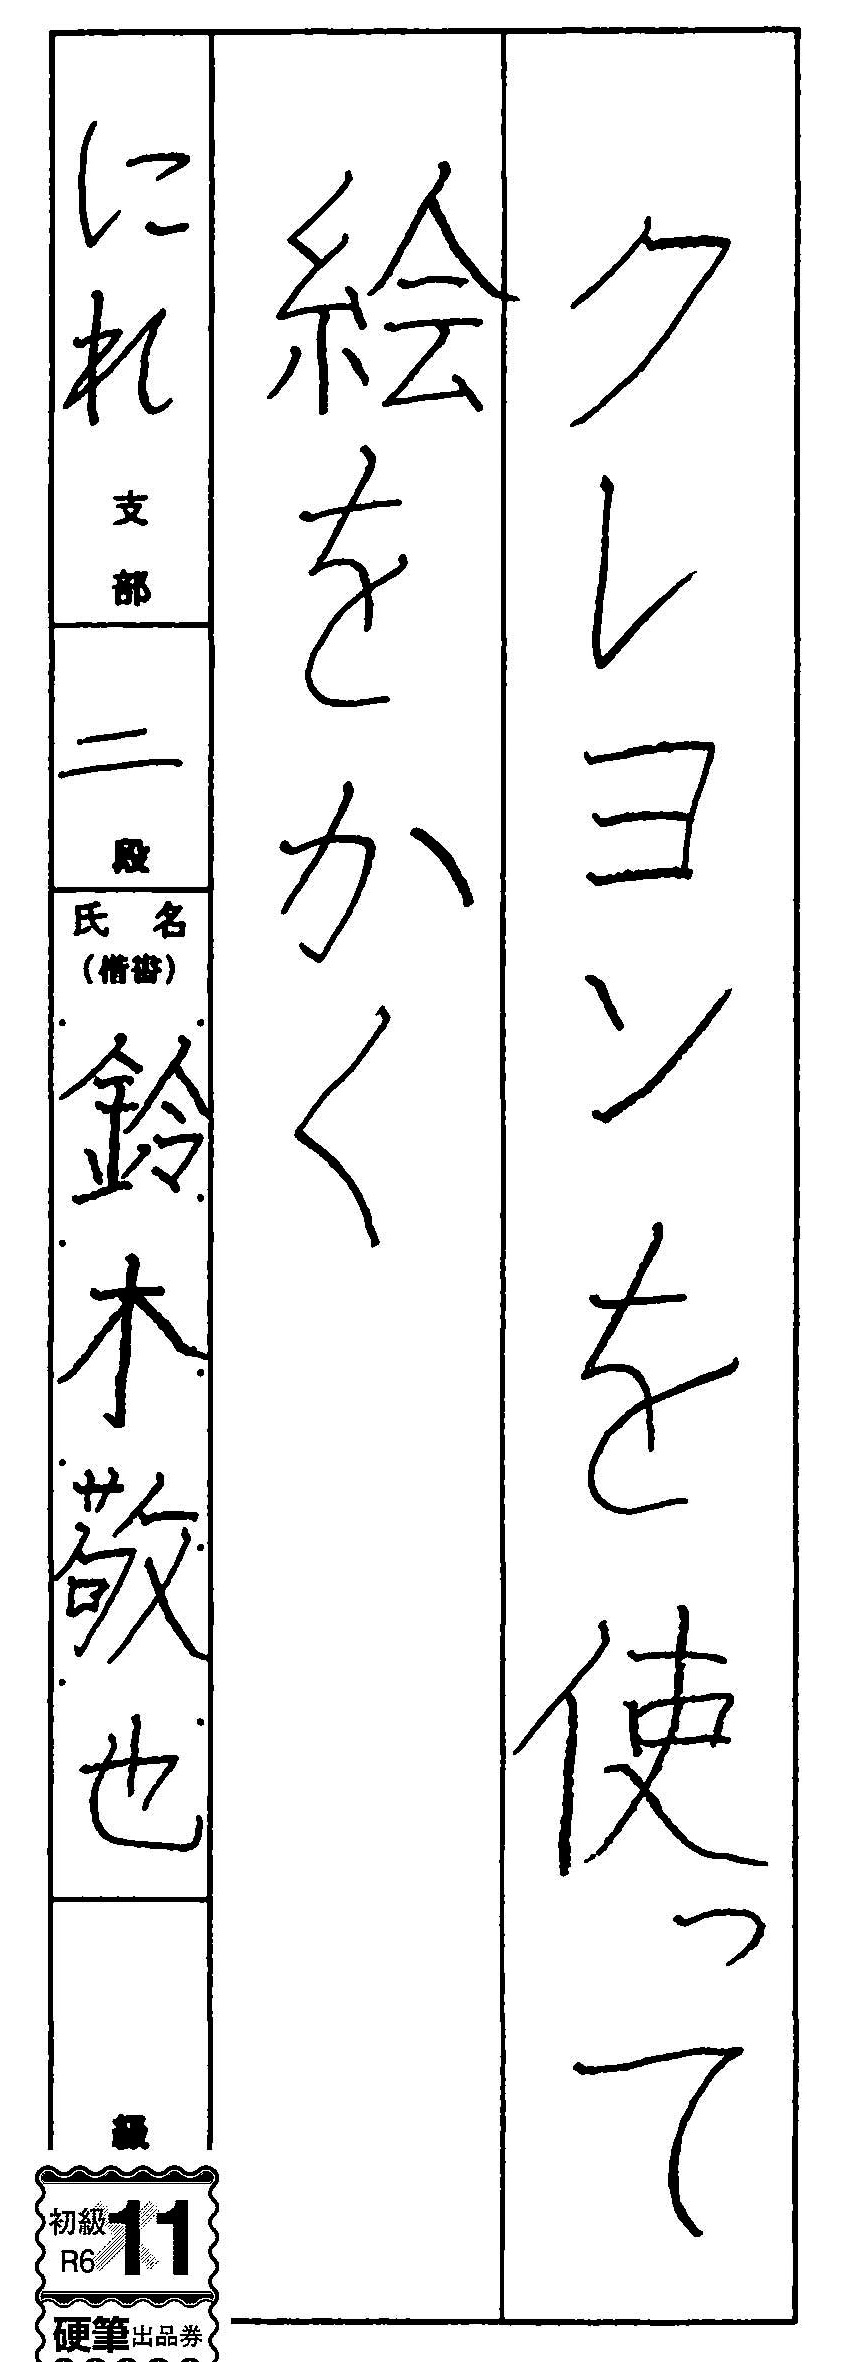 クレヨンを使って
絵をかく
にれ支部
二段
氏名
(楷書)
鈴木敬也
級
初級
R6
11
硬筆出品券